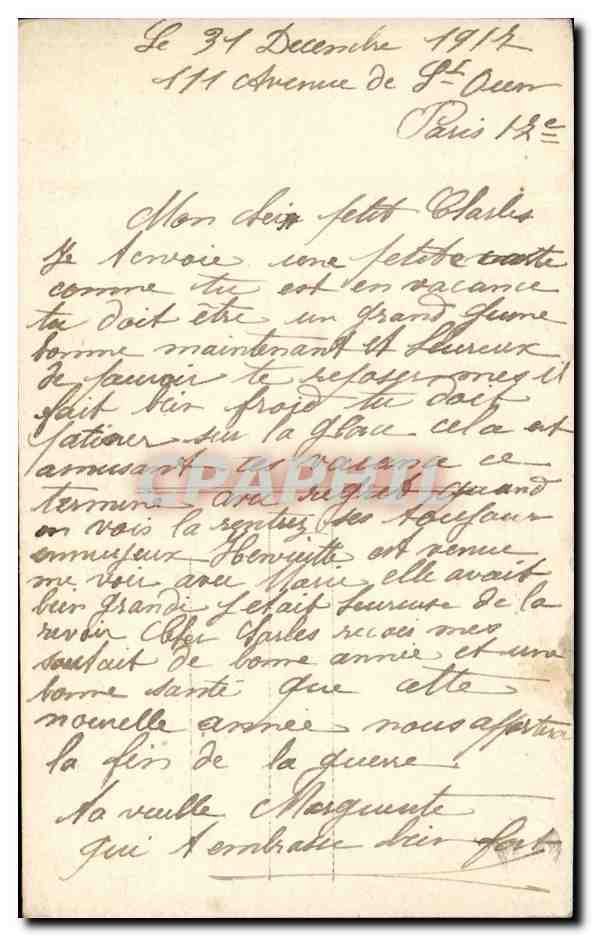 Le 31 Decembre 1917
111 Avenue de St Ouen
Paris 12e
Mon cher petit Charles
Je t'envoie une petite carte
comme tu est en vacance
tu doit être un grand jeune
homme maintenant et heureux
de pouvoir te reposer mes il
fait bien froid tu doit
patiner sur la glace cela est
amusant ces vacance ce
termine avec regret quand
on vois la rentrez ses toujour
ennuyeux Henriette est venue
me voir avec Marie elle avait
bien grandi j'etait heureuse de la
revoir Cher Charles recois mes
souhait de bonne année et une
bonne santé que cette
nouvelle année nous apportera
la fin de la guerre
Ta vieille Marguerite
qui t'embrasse bien fort
CPAPHIL